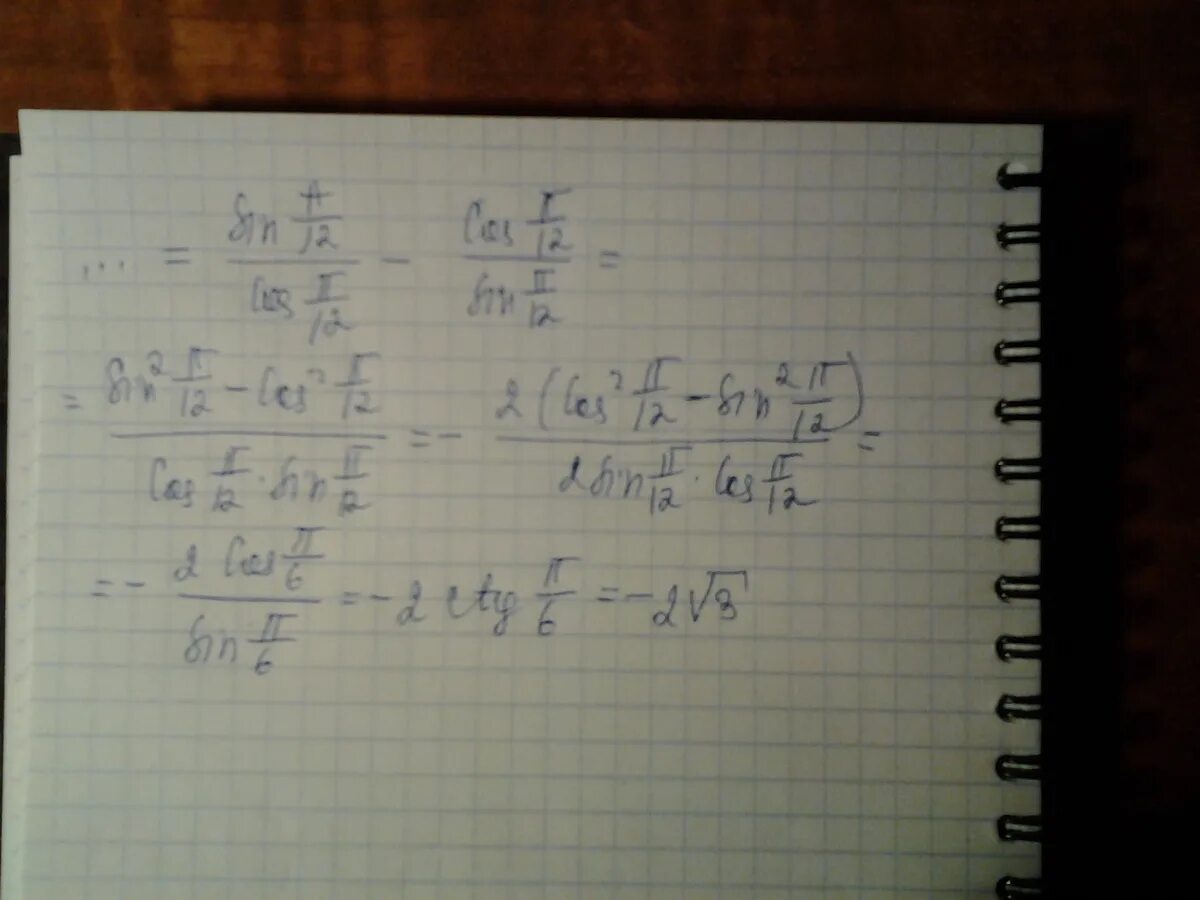 ... = sin π/12 / cos π/12 - cos π/12 / sin π/12 =
= (sin² π/12 - cos² π/12) / (cos π/12 · sin π/12) = - 2 (cos² π/12 - sin² π/12) / (2 sin π/12 · cos π/12) =
= - 2 cos π/6 / sin π/6 = -2 ctg π/6 = -2√3